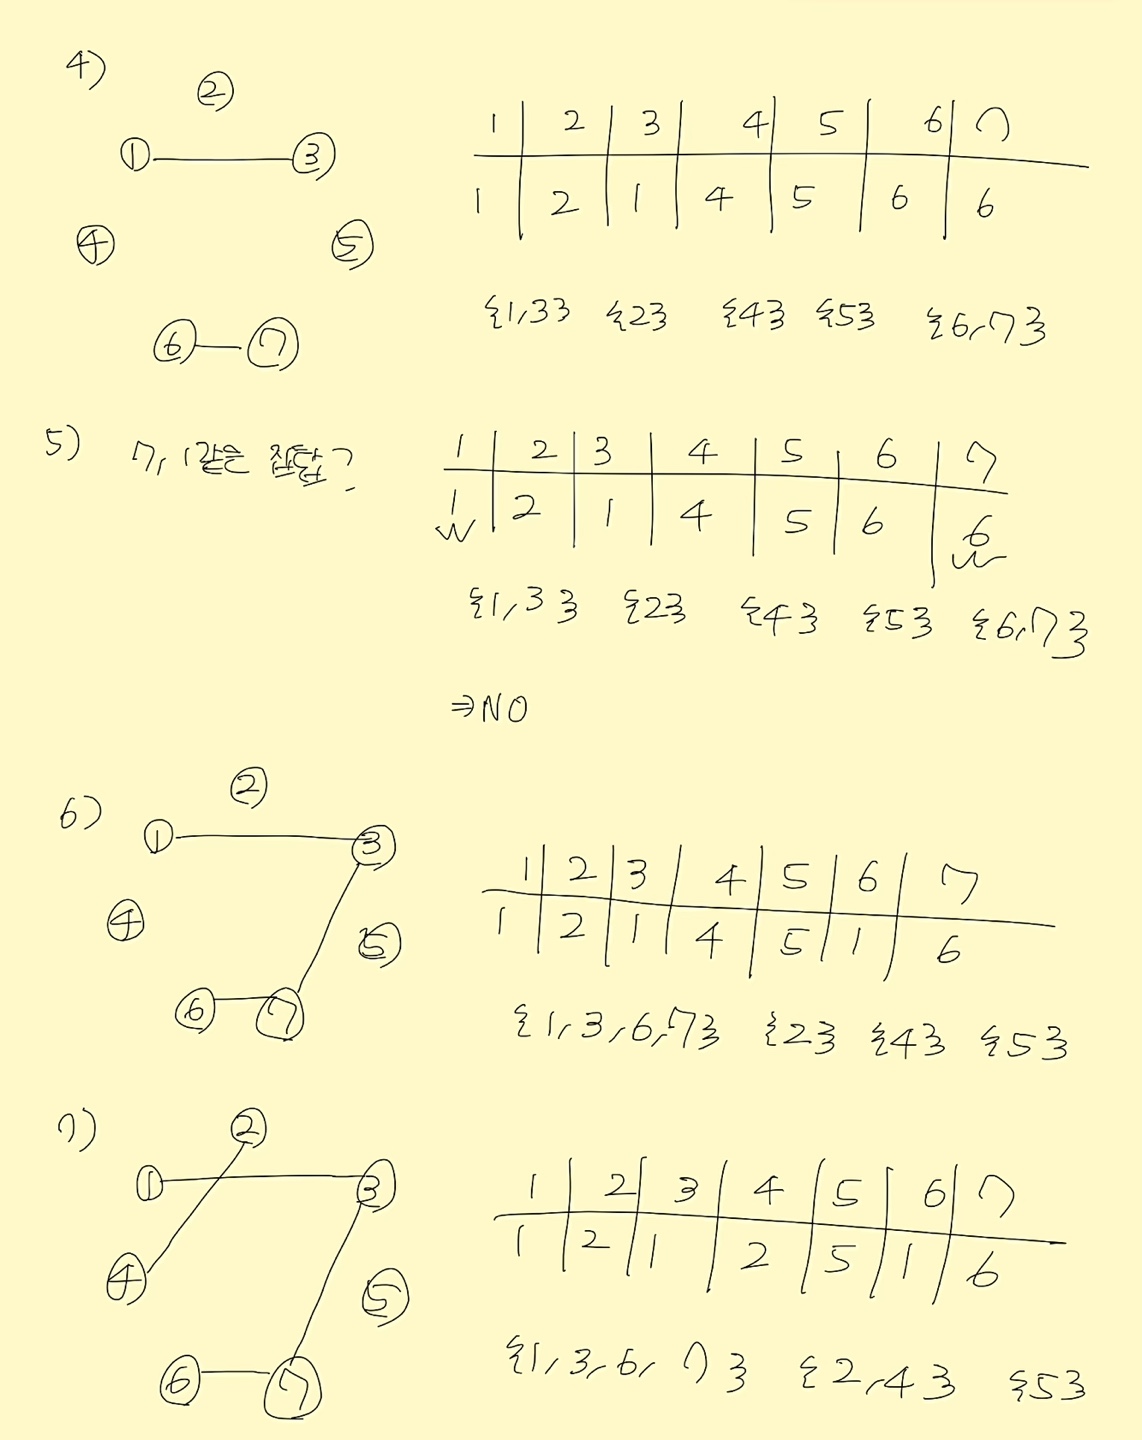 4)
②
① ③
④ ⑤
⑥ ⑦
1 2 3 4 5 6 7
1 2 1 4 5 6 6
{1,3} {2} {4} {5} {6,7}
5) 7, 1 같은 집합?
1 2 3 4 5 6 7
1 2 1 4 5 6 6
{1,3} {2} {4} {5} {6,7}
⇒NO
6)
②
① ③
④ ⑤
⑥ ⑦
1 2 3 4 5 6 7
1 2 1 4 5 1 6
{1,3,6,7} {2} {4} {5}
7)
②
① ③
④ ⑤
⑥ ⑦
1 2 3 4 5 6 7
1 2 1 2 5 1 6
{1,3,6,7} {2,4} {5}